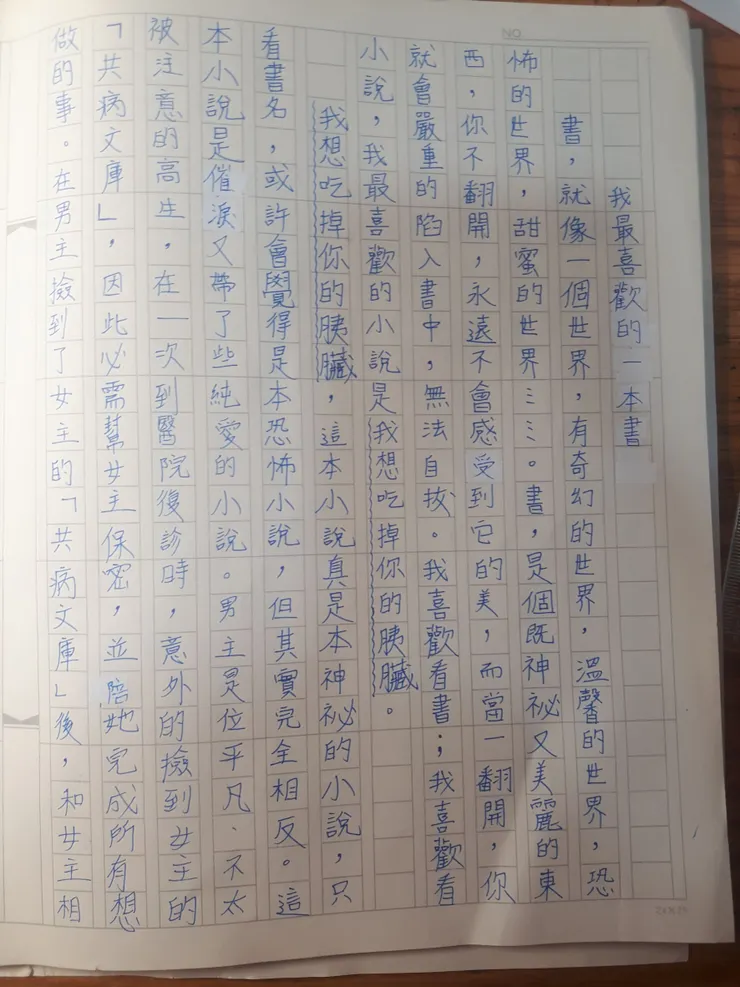 NO.
我最喜歡的一本書
書，就像一個世界，有奇幻的世界，溫馨的世界，恐
怖的世界，甜蜜的世界……。書，是個既神祕又美麗的東
西，你不翻開，永遠不會感受到它的美，而當一翻開，你
就會嚴重的陷入書中，無法自拔。我喜歡看書；我喜歡看
小說，我最喜歡的小說是我想吃掉你的胰臟。
我想吃掉你的胰臟，這本小說真是本神祕的小說，只
看書名，或許會覺得是本恐怖小說，但其實完全相反。這
本小說是催淚又帶了些純愛的小說。男主是位平凡、不太
被注意的高生，在一次到醫院復診時，意外的撿到女主的
「共病文庫」，因此必需幫女主保密，並陪她完成所有想
做的事。在男主撿到了女主的「共病文庫」後，和女主相